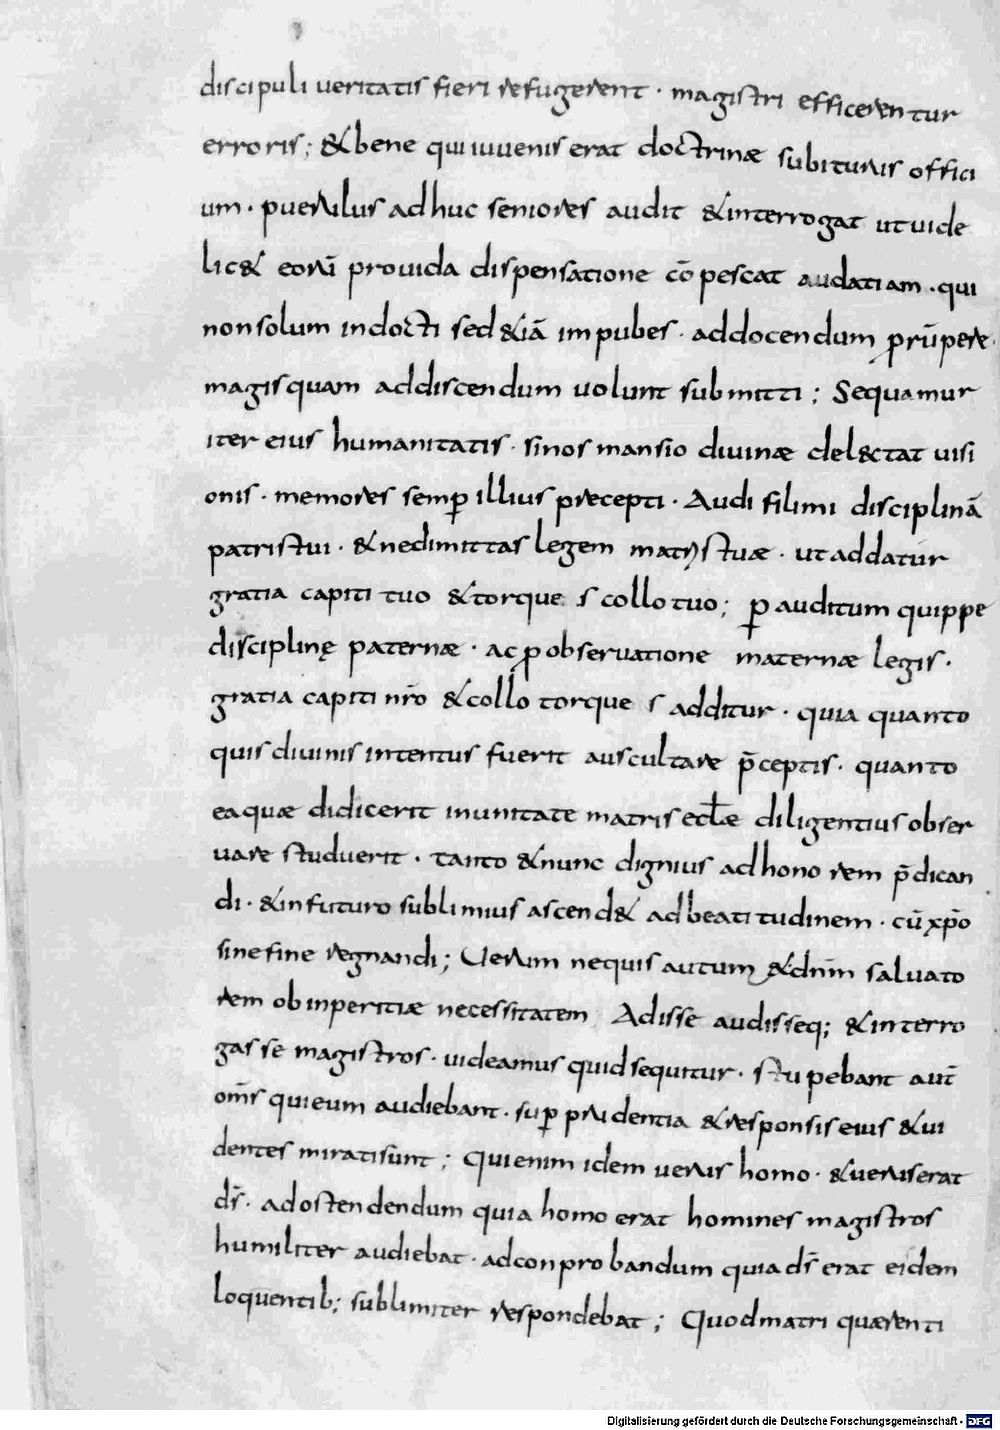 discipuli veritatis fieri refugerent · magistri efficerentur
erroris; & bene qui iuuenis erat doctrinæ subiturus offici
um · puerulus adhuc seniores audit & interrogat ut uide
lic& eorū prouida dispensatione cōpescat audatiam · qui
non solum indocti sed &iā impubes · ad docendum prūpere ·
magis quam ad discendum uolunt submitti; Sequamur
iter eius humanitatis · si nos mansio diuinæ del&ctat uisi
onis · memores semꝑ illius precepti · Audi fili mi disciplinā
patris tui · & ne dimittas legem matris tuæ · ut addatur
gratia capiti tuo & torques collo tuo; ꝑ auditum quippe
disciplinę paternæ · ac ꝑ obseruatione maternæ legis ·
gratia capiti nr̄o & collo torques additur · quia quanto
quis diuinis intentus fuerit auscultare p̄ceptis · quanto
ea quæ didicerit in unitate matris eccƚæ diligentius obser
uare studuerit · tanto & nunc dignius ad honorem p̄dican
di · & in futuro sublimius ascend& ad beatitudinem · cū xp̄o
sine fine regnandi; Uerum ne quis autum & dnm̄ saluato
rem ob inperitiæ necessitatem Adisse audisseq; & interro
gasse magistros · uideamus quid sequitur · stupebant aut̄
om̄s qui eum audiebant · suꝑ prudentia & responsis eius & ui
dentes mirati sunt; Qui enim idem uerus homo · & uerus erat
ds̄ · ad ostendendum quia homo erat homines magistros
humiliter audiebat · ad conprobandum quia ds̄ erat eidem
loquentib; sublimiter respondebat; Quod matri quærenti
Digitalisierung gefördert durch die Deutsche Forschungsgemeinschaft · DFG